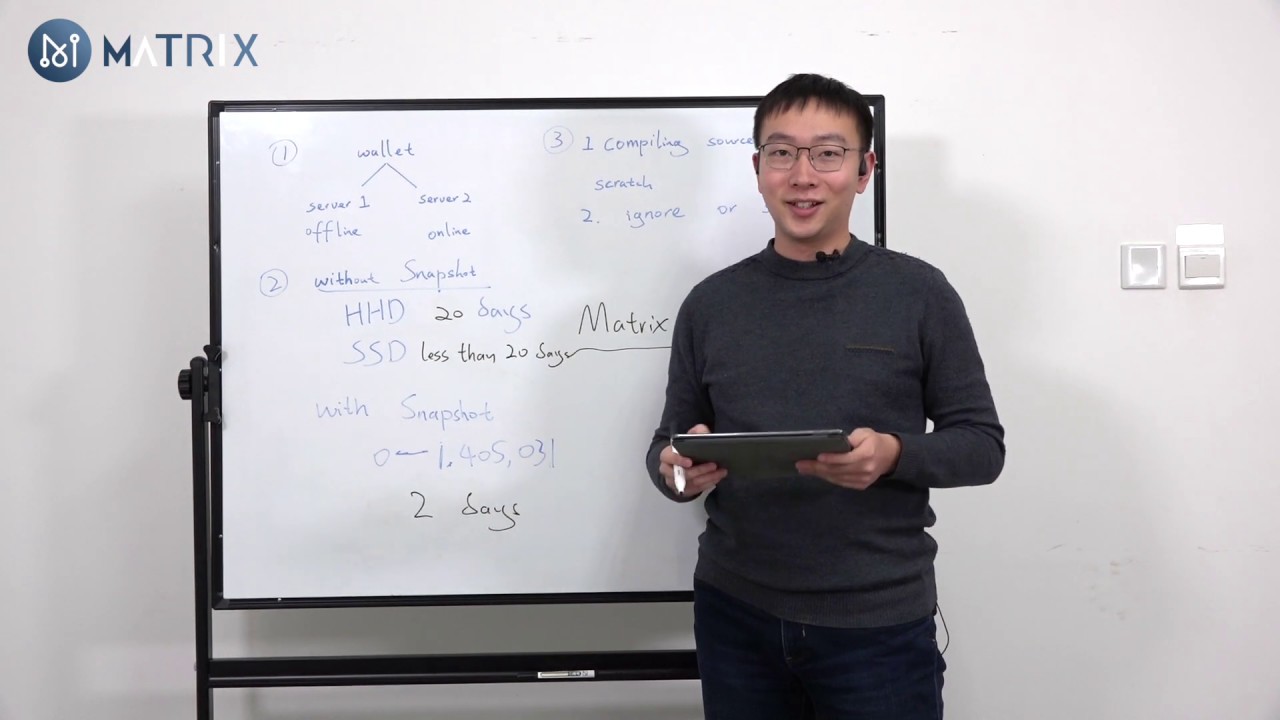 MATRIX
① wallet
server 1 server 2
offline online
② without Snapshot
HHD 20 days
SSD less than 20 days
Matrix
with Snapshot
0—1,405,031
2 days
③ 1 compiling source
scratch
2. ignore or